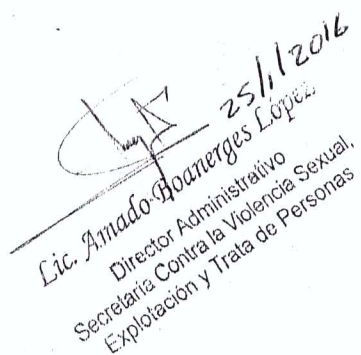 25/1/2016
Lic. Amado Boanerges López
Director Administrativo
Secretaría Contra la Violencia Sexual,
Explotación y Trata de Personas